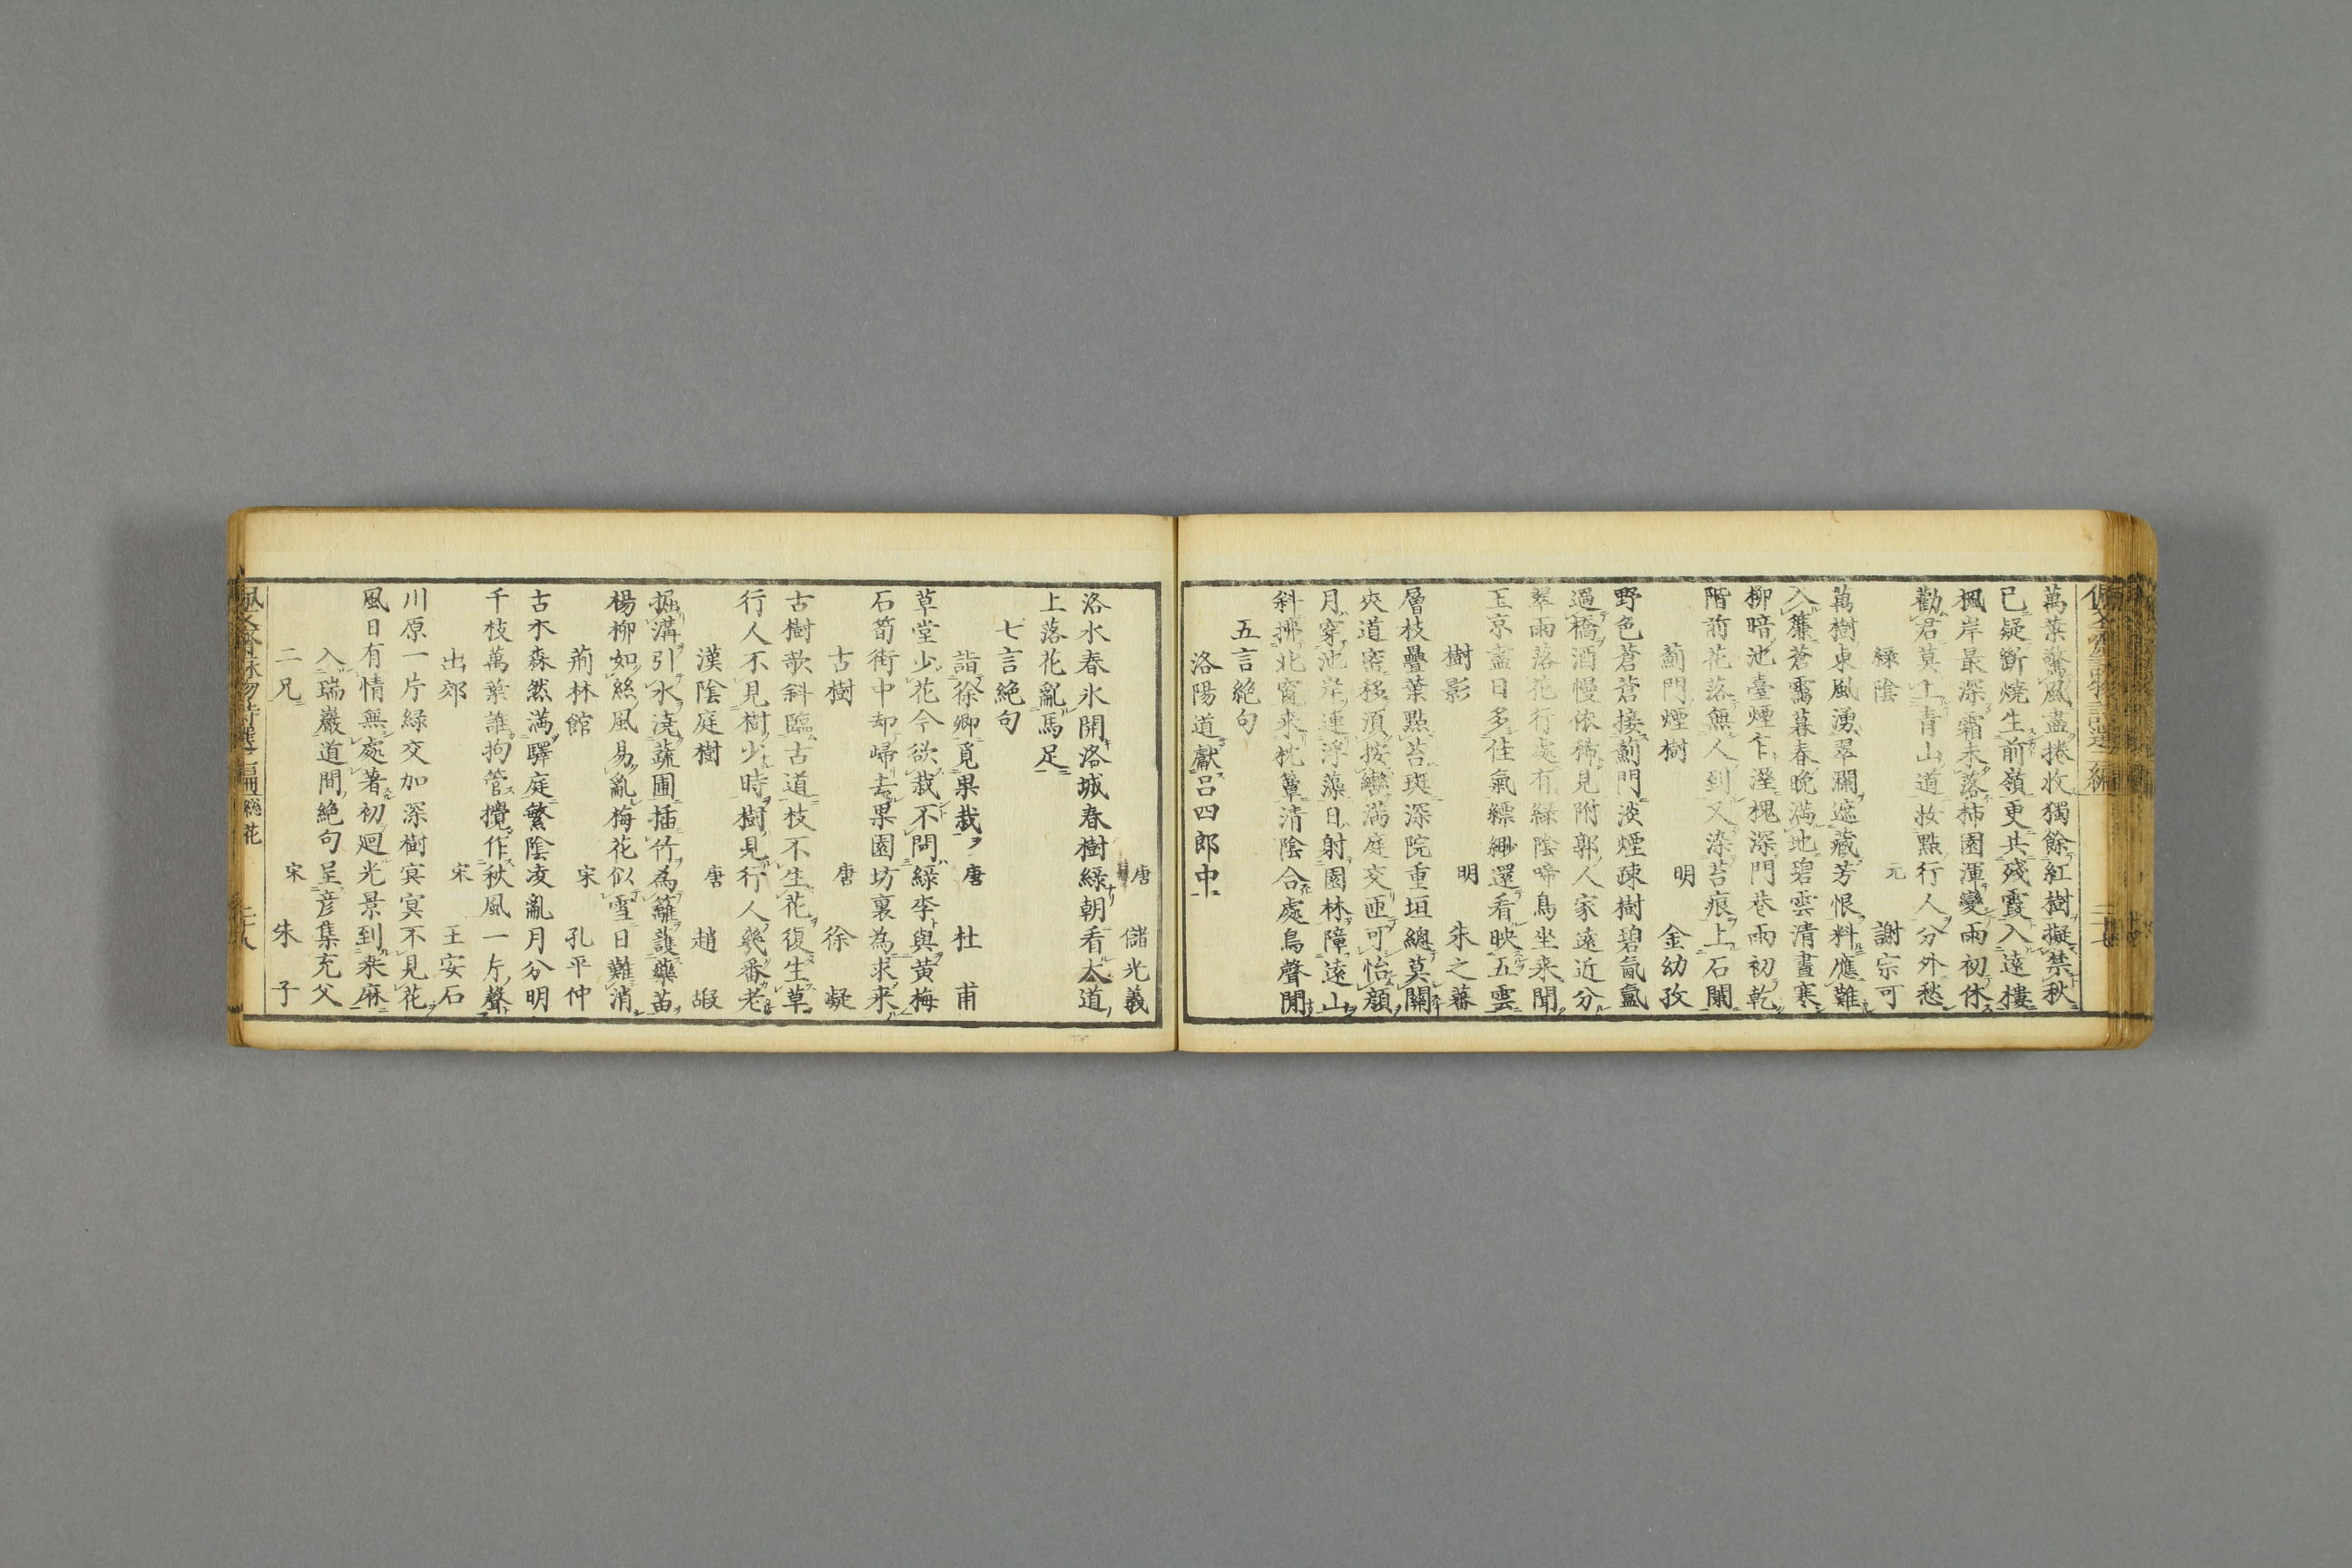 萬葉驚風盡捲收獨餘紅樹擬禁秋
已疑斷燒生前嶺更共殘霞入遠樓
楓岸最深霜未落柿園渾變雨初休
勸君莫上青山道妝點行人分外愁
綠陰 元 謝宗可
萬樹東風湧翠瀾遮藏芳恨料應難
入簾蒼靄暮春晚滿地碧雲清晝寒
柳暗池臺煙乍溼槐深門巷雨初乾
階前花落無人到又染苔痕上石闌
薊門煙樹 明 金幼孜
野色蒼蒼接薊門淡煙疎樹碧氤氳
過橋酒幔依稀見附郭人家遠近分
翠雨落花行處有綠陰啼鳥坐來聞
玉京盡日多佳氣縹緲還看映五雲
樹影 明 朱之蕃
層枝疊葉點苔斑深院重垣總莫關
夾道密移須按轡滿庭交匝可怡顏
月穿池岸連浮藻日射園林障遠山
斜拂北窗來枕簟清陰合處鳥聲閒
五言絕句
洛陽道獻呂四郎中
唐 儲光義
洛水春氷開洛城春樹綠朝看大道
上落花亂馬足
七言絕句
詣徐卿覓果栽 唐 杜甫
草堂少花今欲栽不問綠李與黃梅
石筍街中却歸去果園坊裏為求來
古樹 唐 徐凝
古樹欹斜臨古道枝不生花復生草
行人不見樹少時樹見行人幾番老
漢陰庭樹 唐 趙嘏
掘溝引水澆蔬圃插竹為籬護藥苗
楊柳如絲風易亂梅花似雪日難消
荊林館 宋 孔平仲
古木森然滿驛庭繁陰凌亂月分明
千枝萬葉誰拘管攪作秋風一片聲
出郊 宋 王安石
川原一片綠交加深樹冥冥不見花
風日有情無處著初廻光景到桑麻
入瑞巖道間絕句呈彥集充父
二兄 宋 朱子